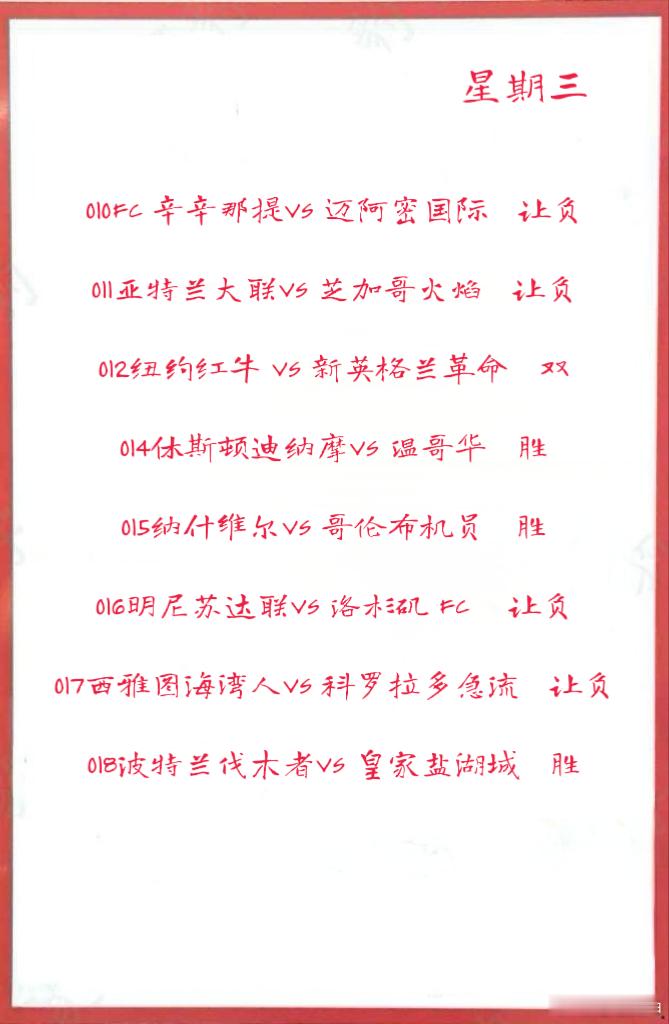 星期三
010FC 辛辛那提VS 迈阿密国际 让负
011亚特兰大联VS 芝加哥火焰 让负
012纽约红牛 VS 新英格兰革命 双
014休斯顿迪纳摩VS 温哥华 胜
015纳什维尔VS 哥伦布机员 胜
016明尼苏达联VS 洛杉矶 FC 让负
017西雅图海湾人VS 科罗拉多急流 让负
018波特兰伐木者VS 皇家盐湖城 胜